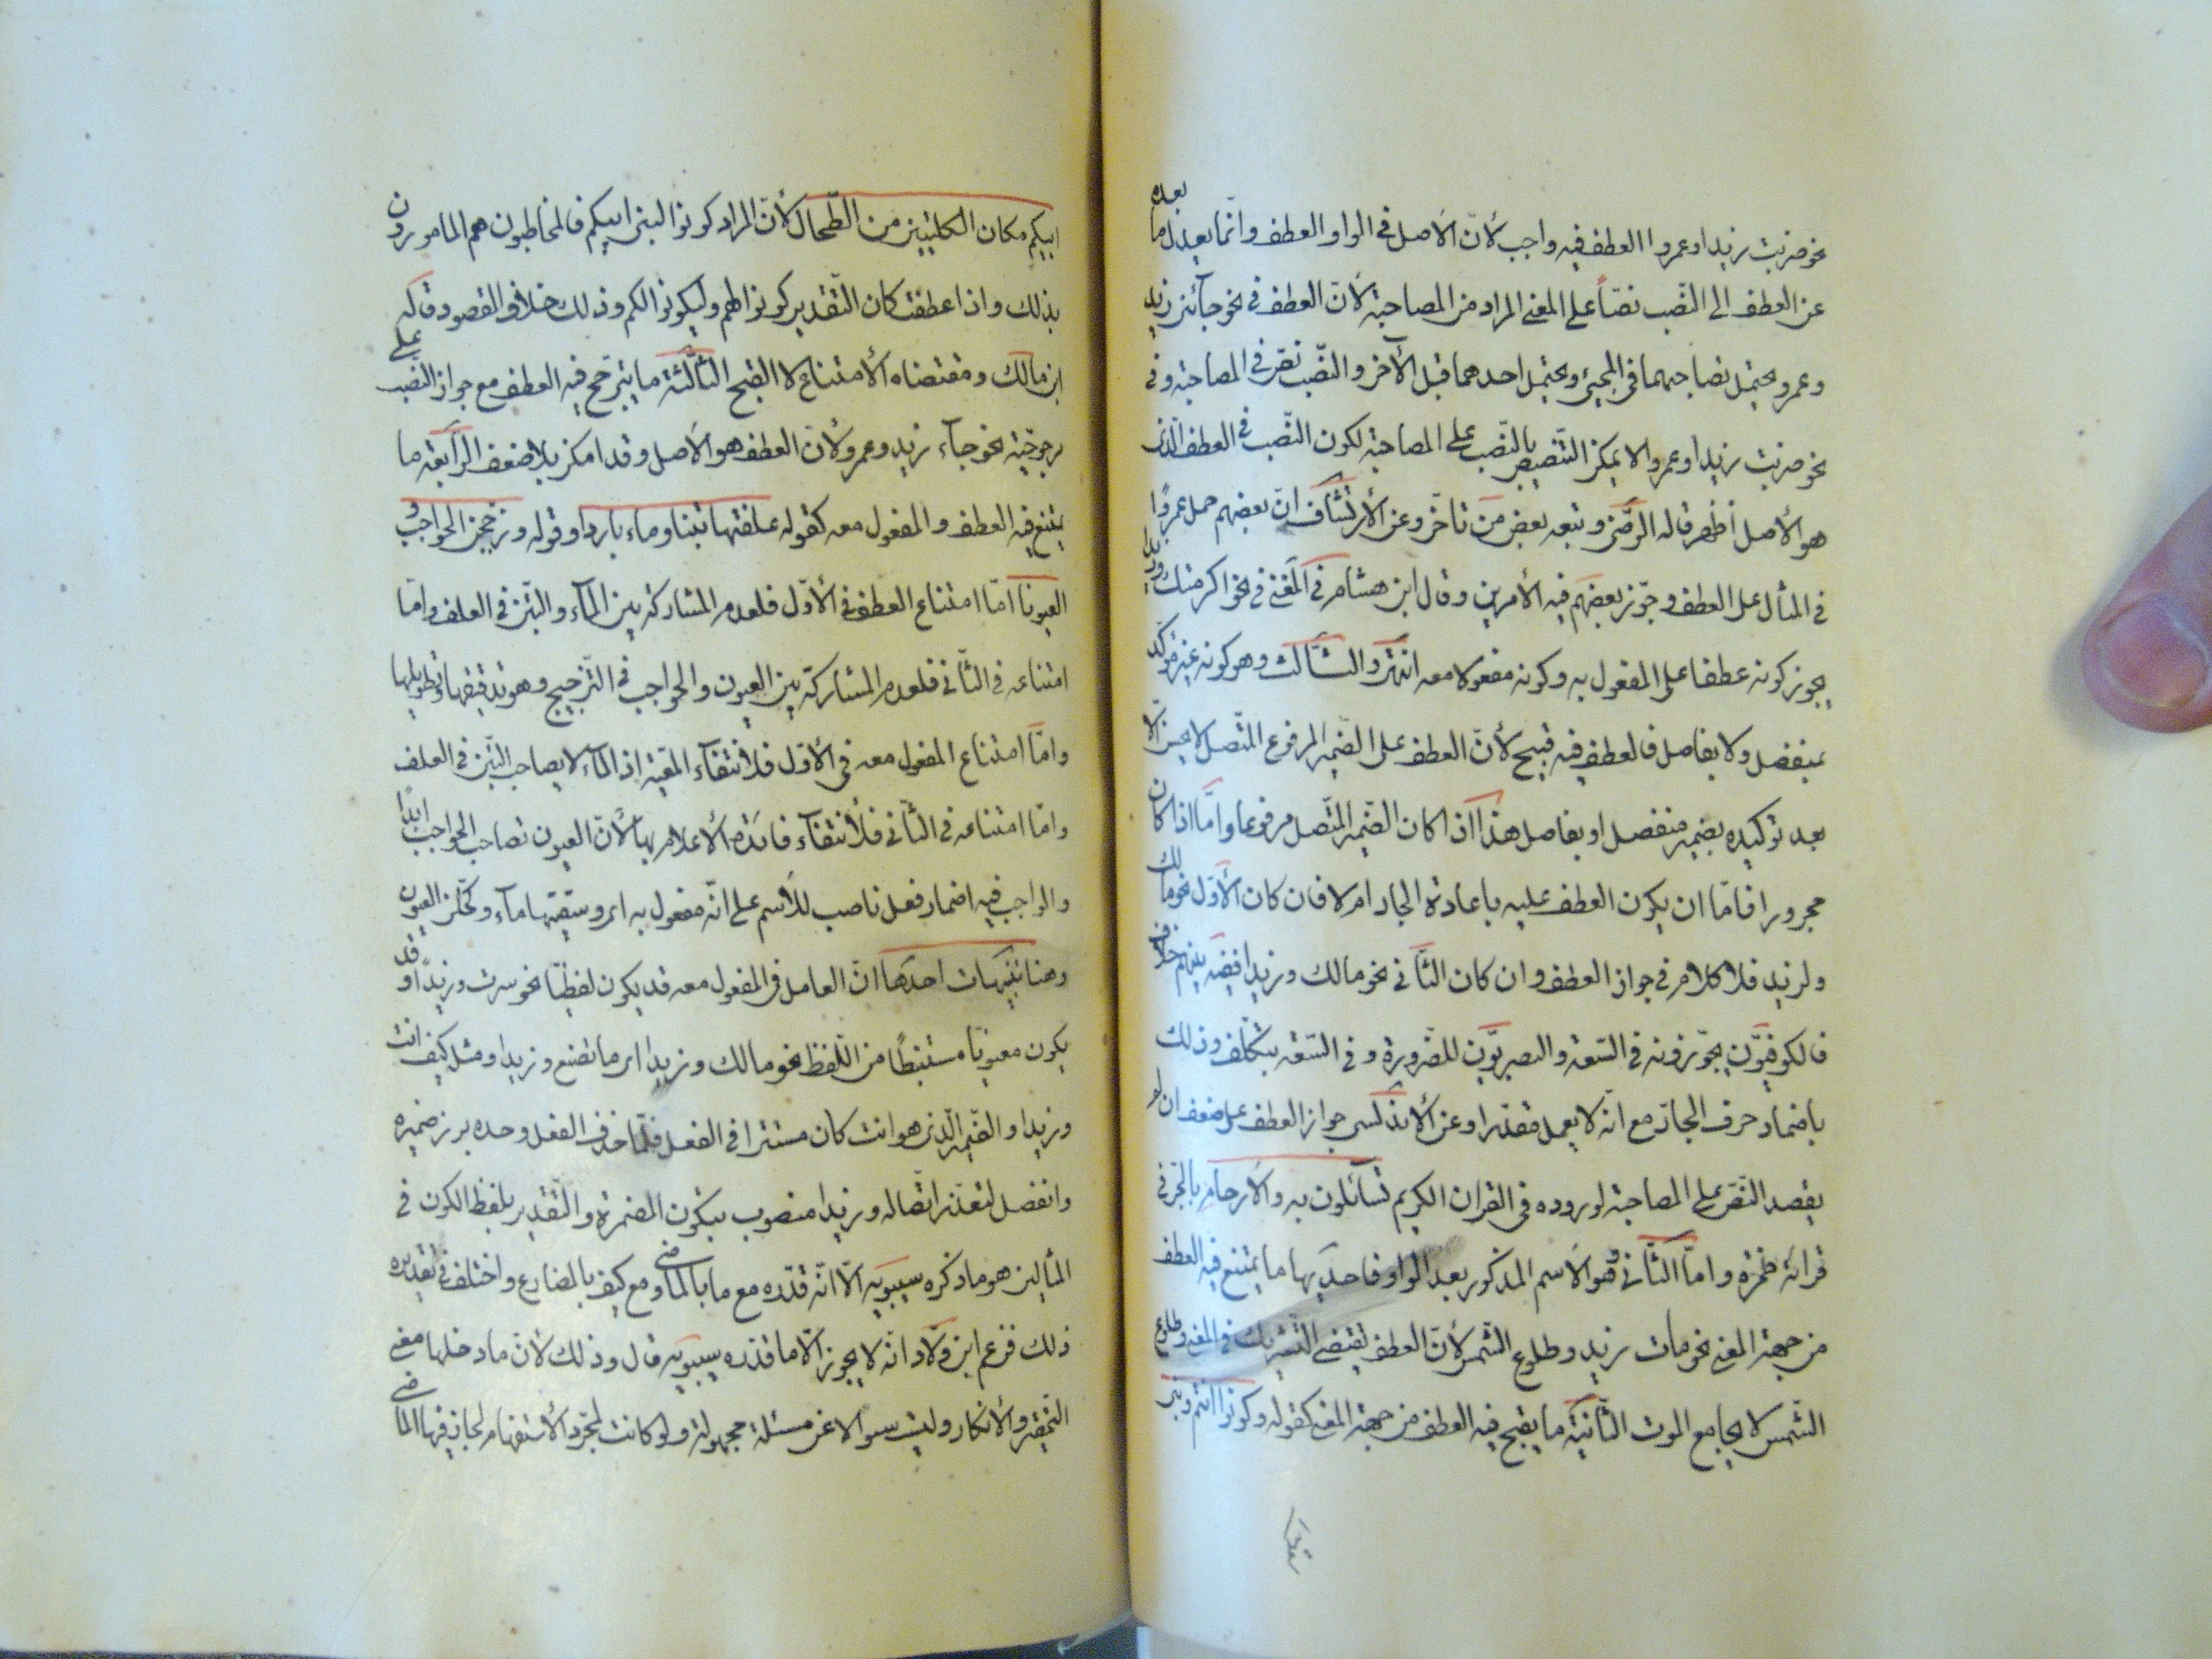 نحو ضربت زيدا وعمروا العطف فيه واجب لأنّ الأصل في الواو العطف وانّما يعدل ما بعده
عن العطف الى النّصب نصّاً على المعنى المراد من المصاحبة لانّ العطف في نحو جآئنى زيد
وعمرو يحتمل تصاحبهما في المجيئ ويحتمل احدهما قبل الآخر والنّصب نصّ في المصاحبة وفى
نحو ضربت زيدا وعمروا لا يمكن التّنصيص بالنّصب على المصاحبة لكون النّصب في العطف الّذى
هو الأصل أظهر قاله الرّضى وتبعه بعض من تاخّر وعن الأرتشاف انّ بعضهم حمل عمروًا
في المثال على العطف وجوّز بعضهم فيه الأمرين وقال ابن هشام في المغنى في نحو اكرمتك وزيدا
يجوز كونه عطفا على المفعول به وكونه مفعولا معه انتهى والثّالث وهو كونه غير مؤكّد
بمنفصل ولا بفاصل فالعطف فيه قبيح لأنّ العطف على الضّمير المرفوع المتّصل لا يحسن الّا
بعد توكيده بضمير منفصل او بفاصل هذا اذا كان الضّمير المتّصل مرفوعا وامّا اذا كان
مجرورا فامّا ان يكون العطف عليه باعادة الجار ام لا فان كان الأوّل نحو مالك
ولزيد فلا كلام في جواز العطف وان كان الثّانى نحو مالك وزيدا ففيه بينهم خلاف
فالكوفيّون يجوّزونه في السّعة والبصريّون للضّرورة وفى السّعة بتكلّف وذلك
باضمار حرف الجارّ مع انّه لا يعمل مقدّرا وعن الأندلسى جواز العطف على ضعف ان لم
يقصد النّصّ على المصاحبة لوروده في القران الكريم تسآئلون به والأرحام بالجرّ في
قرائة حمزة وامّا الثّانى وهو الأسم المذكور بعد الواو فاحديها ما يمتنع فيه العطف
من جهة المعنى نحو مات زيد وطلوع الشّمس لأنّ العطف يقتضى التّشريك في المعنى وطلوع
الشّمس لا يجامع الموت الثّانية ما يقبح فيه العطف من جهة المعنى كقوله وكونوا انتم وبنى
ابيكم مكان الكليتين من الطّحال لأنّ المراد كونوا لبنى ابيكم فالمخاطبون هم المامورون
بذلك واذا عطفت كان التّقدير كونوا لهم وليكونوا لكم وذلك خلاف المقصود قاله
ابن مالك ومقتضاه الأمتناع لا القبح الثّالثة ما يترجّح فيه العطف مع جواز النّصب على
مرجوحيّة نحو جآء زيد وعمرو لأنّ العطف هو الأصل وقد امكن بلا ضعف الرّابعة ما
يمتنع فيه العطف والمفعول معه كقوله علفتها تبنا وماء باردا وقوله وزجّجن الحواجب و
العيونا امّا امتناع العطف في الأوّل فلعدم المشاركة بين المآء والتّبن في العلف وامّا
امتناعه في الثّانى فلعدم المشاركة بين العيون والحواجب في التّزجيج وهو تدقيقها وتطويلها
وامّا امتناع المفعول معه في الأوّل فلأنتفآء المعيّة اذ المآء لا يصاحب التّبن في العلف
وامّا امتناعه في الثّانى فلأنتفآء فائدة الأعلام بها لأنّ العيون تصاحب الحواجب ابدًا
والواجب فيه اضمار فعل ناصب للأسم على انّه مفعول به اى وسقيتها مآء وكحّلن العيون
وهنا تنبيهات احدها انّ العامل في المفعول معه قد يكون لفظيّا نحو سرت وزيدًا وقد
يكون معنويّا مستنبطًا من اللّفظ نحو مالك وزيدا اى ما تصنع وزيدا ومثله كيف انت
وزيدا والضّمير الّذى هو انت كان مستترا في الفعل فلمّا حذف الفعل وحده برز ضميره
وانفصل لتعذّر اتّصاله وزيدا منصوب بتكون المضمرة والتّقدير بلفظ الكون في
المثالين هو ما ذكره سيبويه الّا انّه قدّره مع ما بالماضى ومع كيف بالمضارع واختلف في تقديره
ذلك فزعم ابن ولّاد انّه لا يجوز الّا ما قدّره سيبويه قال وذلك لأنّ ما دخلها معنى
التّحقير والأنكار وليست سوالا عن مسئلة مجهولة ولو كانت لمجرّد الأستفهام لجاز فيها الماضى